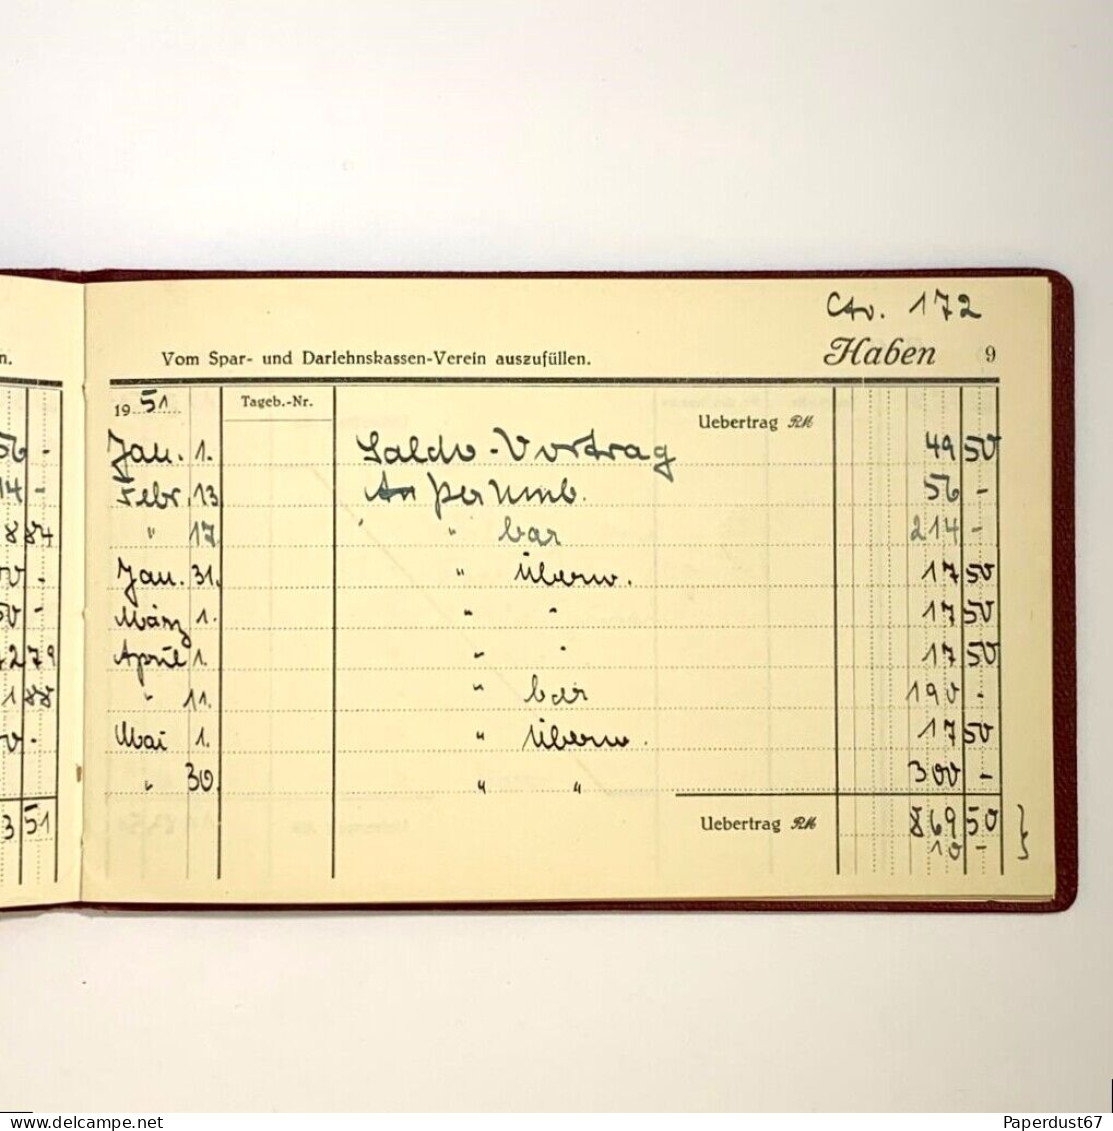 Ctv. 172
n. Vom Spar- und Darlehnskassen-Verein auszufüllen. Haben 9
1951 Tageb.-Nr. Uebertrag RM
56 - Jan. 1. Saldo-Vortrag 49 50
14 - Febr. 13 An per Umb. 56 -
8 84 " 17 " bar 214 -
00 - Jan. 31. " Überw. 17 50
50 - März 1. " " 17 50
42 79 April 1. " " 17 50
1 88 " 11. " bar 190 -
00 - Mai 1. " Überw. 17 50
" 30. " " 300 -
3 51 Uebertrag RM 869 50
10 -
Paperdust67